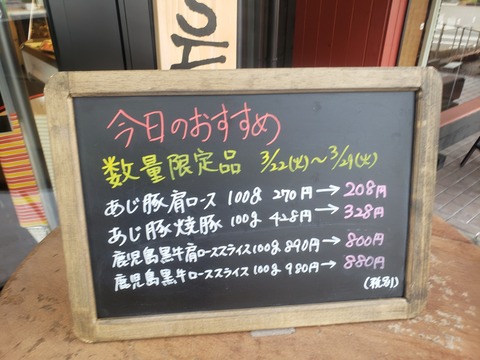 今日のおすすめ
数量限定品 3/22(火)〜3/29(火)
あじ豚肩ロース 100g 270円→208円
あじ豚焼豚 100g 428円→328円
鹿児島黒牛肩ローススライス100g 890円→800円
鹿児島黒牛ローススライス100g 980円→880円
(税別)